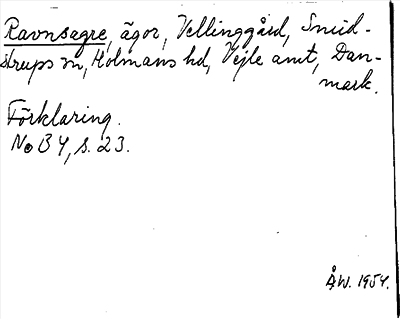 Ravnsagre, ägor, Vellinggård, Smid-
strups sn, Holmans hd, Vejle amt, Dan-
mark.
Förklaring.
NoB 4, s. 23.
ÅW. 1954.